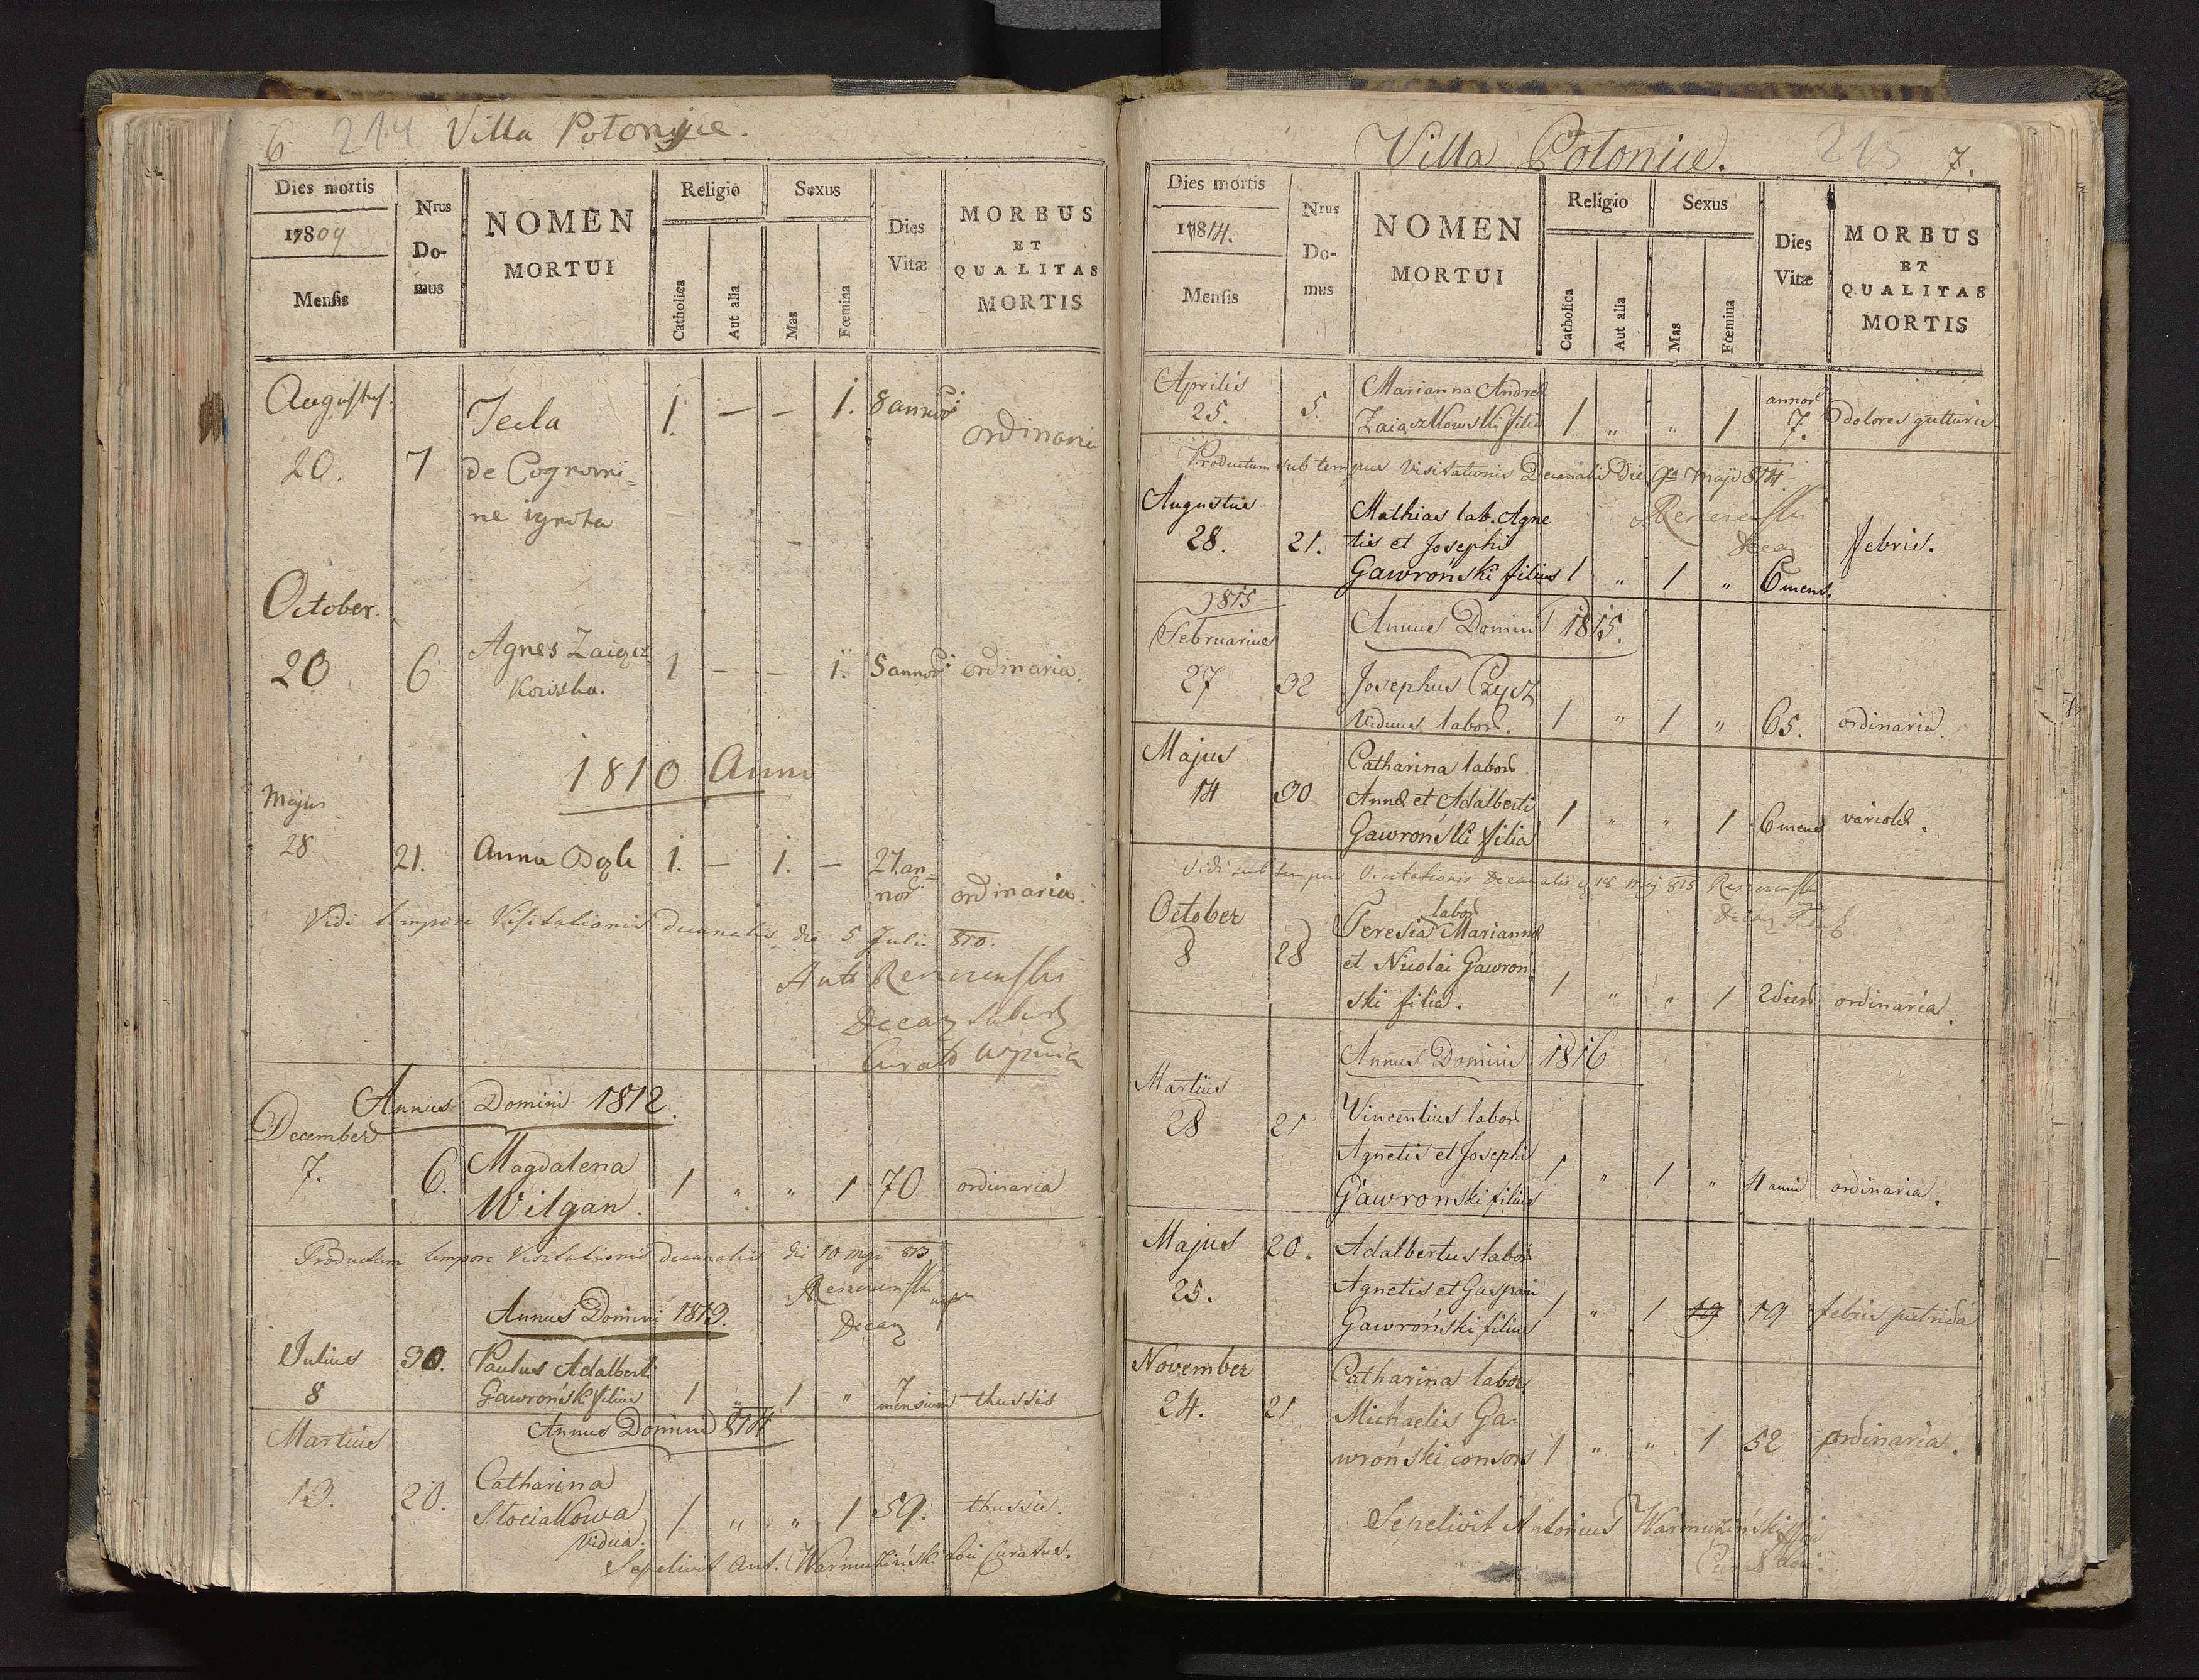 6. 214 Villa Potonije.
Dies mortis
1809
Mensis
Nrus Do-mus
NOMEN MORTUI
Religio
Catholica
Aut alia
Sexus
Mas
Fœmina
Dies Vitæ
MORBUS ET QUALITAS MORTIS
Augustus.
20. 7 Tecla 1. — — 1. 8 annor: ordinaria
de Cognomi=
ne ignota
October.
20 6 Agnes Zaiącz 1 — — 1. 5 annor: ordinaria.
kowska.
1810 Anno
Majus
28 21. Anna Bąk 1. — 1. — 27 an=
nor ordinaria.
Vidi tempore Visitationis decanalis die 5. Julii 810.
Decan
Annus Domini 1812.
December
7. 6. Magdalena
Wilgan. 1 „ „ 1 70 ordinaria
Productum tempore Visitationis decanalis die 10 maji 813
Decan
Annus Domini 1813.
Julius 30. Paulus Adalberti
8 Gawroński filius 1 „ 1 „ 7 mensium thussis
Annus Domini 814
Martius
13. 20. Catharina
Stociakowa
vidua. 1 „ „ 1 59. thussis.
Sepelivit Ant. Warmuziński Loci Curatus.
Villa Potoniie. 215 7.
Dies mortis
1814.
Mensis
Nrus Do-mus
NOMEN MORTUI
Religio
Catholica
Aut alia
Sexus
Mas
Fœmina
Dies Vitæ
MORBUS ET QUALITAS MORTIS
Aprilis
25. 5. Marianna Andreæ
Zaiączkowski filia 1 „ „ 1 annor 7. dolores gutturis
Productum sub tempus Visitationis Decanalis Die 9a Maji 814.
Augustus
28. 21. Mathias lab. Agne
tis et Josephi
Gawroński filius 1 „ 1 „ 6 mens. febris.
Decan
815
Annus Domini 1815.
Februarius
27 32 Josephus Czyż
viduus labor. 1 „ 1 „ 65. ordinaria.
Majus
14 30 Catharina labor
Annæ et Adalberti
Gawroński filia 1 „ „ 1 6 mens variolæ.
Vidi sub tempus Visitationis Decanalis 18 Maj 815
October
8 28 labor
Teresia Mariannæ
et Nicolai Gawroń
ski filia. 1 „ „ 1 2 dier ordinaria.
Annus Domini 1816
Martius
28 21 Vincentius labor
Agnetis et Josephi
Gawronski filius 1 „ 1 „ 4 anni ordinaria.
Majus 20. Adalbertus labor
25. Agnetis et Gaspari
Gawroński filius 1 „ 1 19 19 febris putrida
November
24. 21 Catharina labor
Michaelis Ga-
wroński consors 1 „ „ 1 52 ordinaria.
Sepelivit Antonius Warmuziński